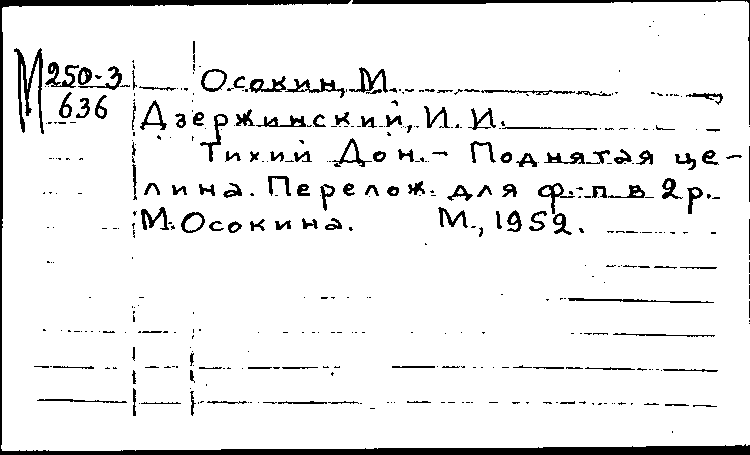 М 250-3
636
Осокин, М.
Дзержинский, И. И.
Тихий Дон. - Поднятая це-
лина. Перелож. для ф.-п. в 2 р.
М. Осокина. М., 1952.